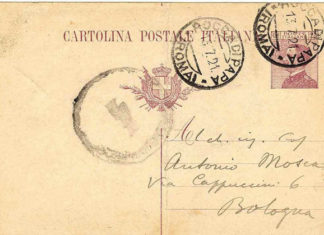 CARTOLINA POSTALE ITALIANA
ROCCA DI PAPA
(ROMA)
7.21
ROCCA DI PAPA
(ROMA)
4
Antonio Mosca
Via Cappuccini 6
Bologna